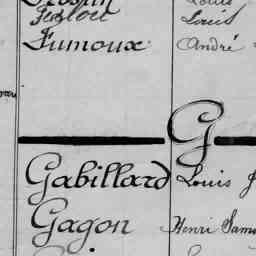 Louis
Louis
Fumoux André
G
Gabillard Louis J
Gagon Henri Samu